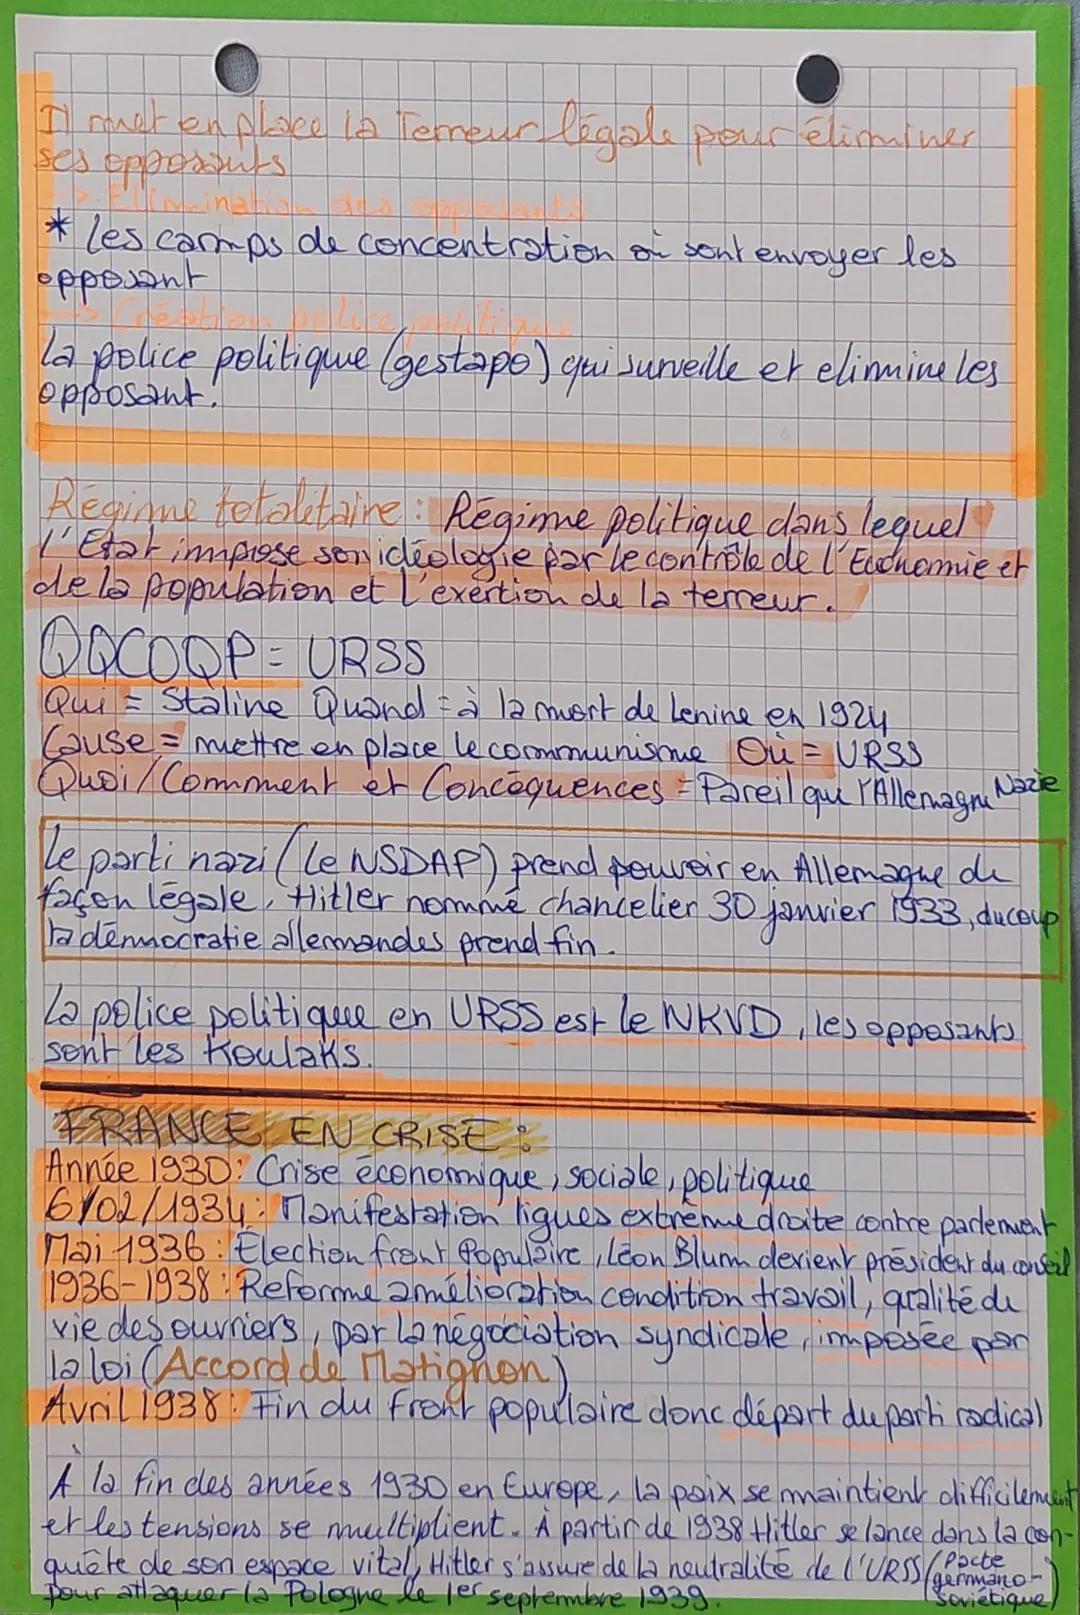 Il met en place la Terreur légale pour éliminer
ses opposants
-> Elimination des opposants
* les camps de concentration où sont envoyer les
opposant
-> Création police politique
la police politique (gestapo) qui surveille et elimine les
opposant.
Régime totalitaire : Régime politique dans lequel
l'Etat impose son idéologie par le contrôle de l'Economie et
de la population et l'exertion de la terreur.
QQCOQP = URSS
Qui = Staline Quand = à la mort de Lenine en 1924
Cause = mettre en place le communisme Où = URSS
Quoi/Comment et Concéquences = Pareil que l'Allemagne Nazie
Le parti nazi (le NSDAP) prend pouvoir en Allemagne de
façon légale, Hitler nommé chancelier 30 janvier 1933, ducoup
la démocratie allemandes prend fin.
La police politique en URSS est le NKVD, les opposants
sont les Koulaks.
FRANCE EN CRISE :
Année 1930: Crise économique, sociale, politique
6/02/1934: Manifestation ligues extrême droite contre parlement
Mai 1936 : Élection front Populaire, Léon Blum devient président du conseil
1936-1938 : Reforme amélioration condition travail, qualité de
vie des ouvriers, par la négociation syndicale, imposée par
la loi (Accord de Matignon)
Avril 1938 : Fin du Front populaire donc départ du parti radical
À la fin des années 1930 en Europe, la paix se maintient difficilement
et les tensions se multiplient. À partir de 1938 Hitler se lance dans la con-
quête de son espace vital, Hitler s'assure de la neutralité de l'URSS (Pacte germano-soviétique)
pour attaquer la Pologne le 1er septembre 1939.